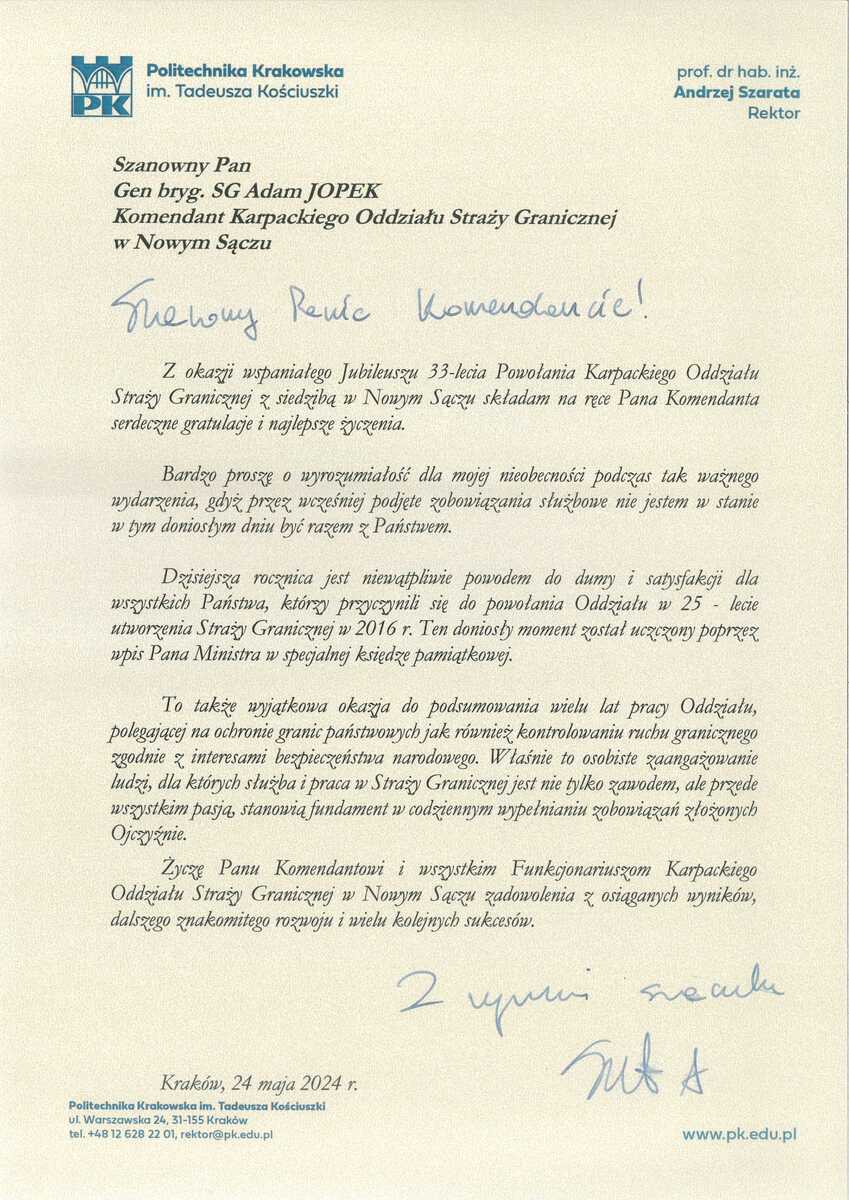 PK
Politechnika Krakowska
im. Tadeusza Kościuszki
prof. dr hab. inż.
Andrzej Szarata
Rektor
Szanowny Pan
Gen bryg. SG Adam JOPEK
Komendant Karpackiego Oddziału Straży Granicznej
w Nowym Sączu
Szanowny Panie Komendancie!
Z okazji wspaniałego Jubileuszu 33-lecia Powołania Karpackiego Oddziału
Straży Granicznej z siedzibą w Nowym Sączu składam na ręce Pana Komendanta
serdeczne gratulacje i najlepsze życzenia.
Bardzo proszę o wyrozumiałość dla mojej nieobecności podczas tak ważnego
wydarzenia, gdyż przez wcześniej podjęte zobowiązania służbowe nie jestem w stanie
w tym doniosłym dniu być razem z Państwem.
Dzisiejsza rocznica jest niewątpliwie powodem do dumy i satysfakcji dla
wszystkich Państwa, którzy przyczynili się do powołania Oddziału w 25 - lecie
utworzenia Straży Granicznej w 2016 r. Ten doniosły moment został uczczony poprzez
wpis Pana Ministra w specjalnej księdze pamiątkowej.
To także wyjątkowa okazja do podsumowania wielu lat pracy Oddziału,
polegającej na ochronie granic państwowych jak również kontrolowaniu ruchu granicznego
zgodnie z interesami bezpieczeństwa narodowego. Właśnie to osobiste zaangażowanie
ludzi, dla których służba i praca w Straży Granicznej jest nie tylko zawodem, ale przede
wszystkim pasją, stanowią fundament w codziennym wypełnianiu zobowiązań złożonych
Ojczyźnie.
Życzę Panu Komendantowi i wszystkim Funkcjonariuszom Karpackiego
Oddziału Straży Granicznej w Nowym Sączu zadowolenia z osiąganych wyników,
dalszego znakomitego rozwoju i wielu kolejnych sukcesów.
Z wyrazami szacunku
Kraków, 24 maja 2024 r.
Politechnika Krakowska im. Tadeusza Kościuszki
ul. Warszawska 24, 31-155 Kraków
tel. +48 12 628 22 01, rektor@pk.edu.pl
www.pk.edu.pl